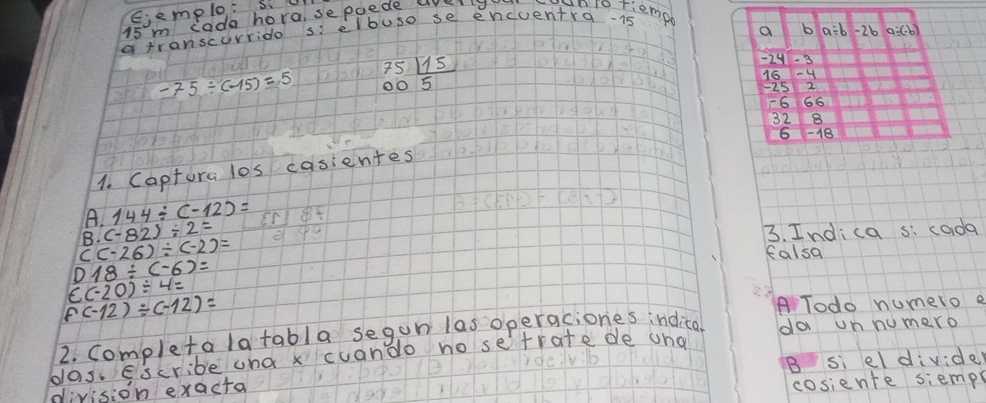 Ejemplo: si
15 m cada hora, se puede tiempo
a transcurrido si el buso se encuentra -15
-75 ÷ (-15) = 5
75 | 15
00 5
1. Captura los casientes
A. 144 ÷ (-12) =
B. (-82) ÷ 2 =
C (-26) ÷ (-2) =
D 18 ÷ (-6) =
E (-20) ÷ 4 =
F (-12) ÷ (-12) =
2. Completa la tabla segun las operaciones indica-
das. Escribe una x cuando no se trate de una
división exacta
a b a÷b -2b a÷(-b)
-24 -3
16 -4
-25 2
-6 66
32 8
6 -18
3. Indica si cada
falsa
A Todo numero
da un numero
B si el divide
cosiente siemp